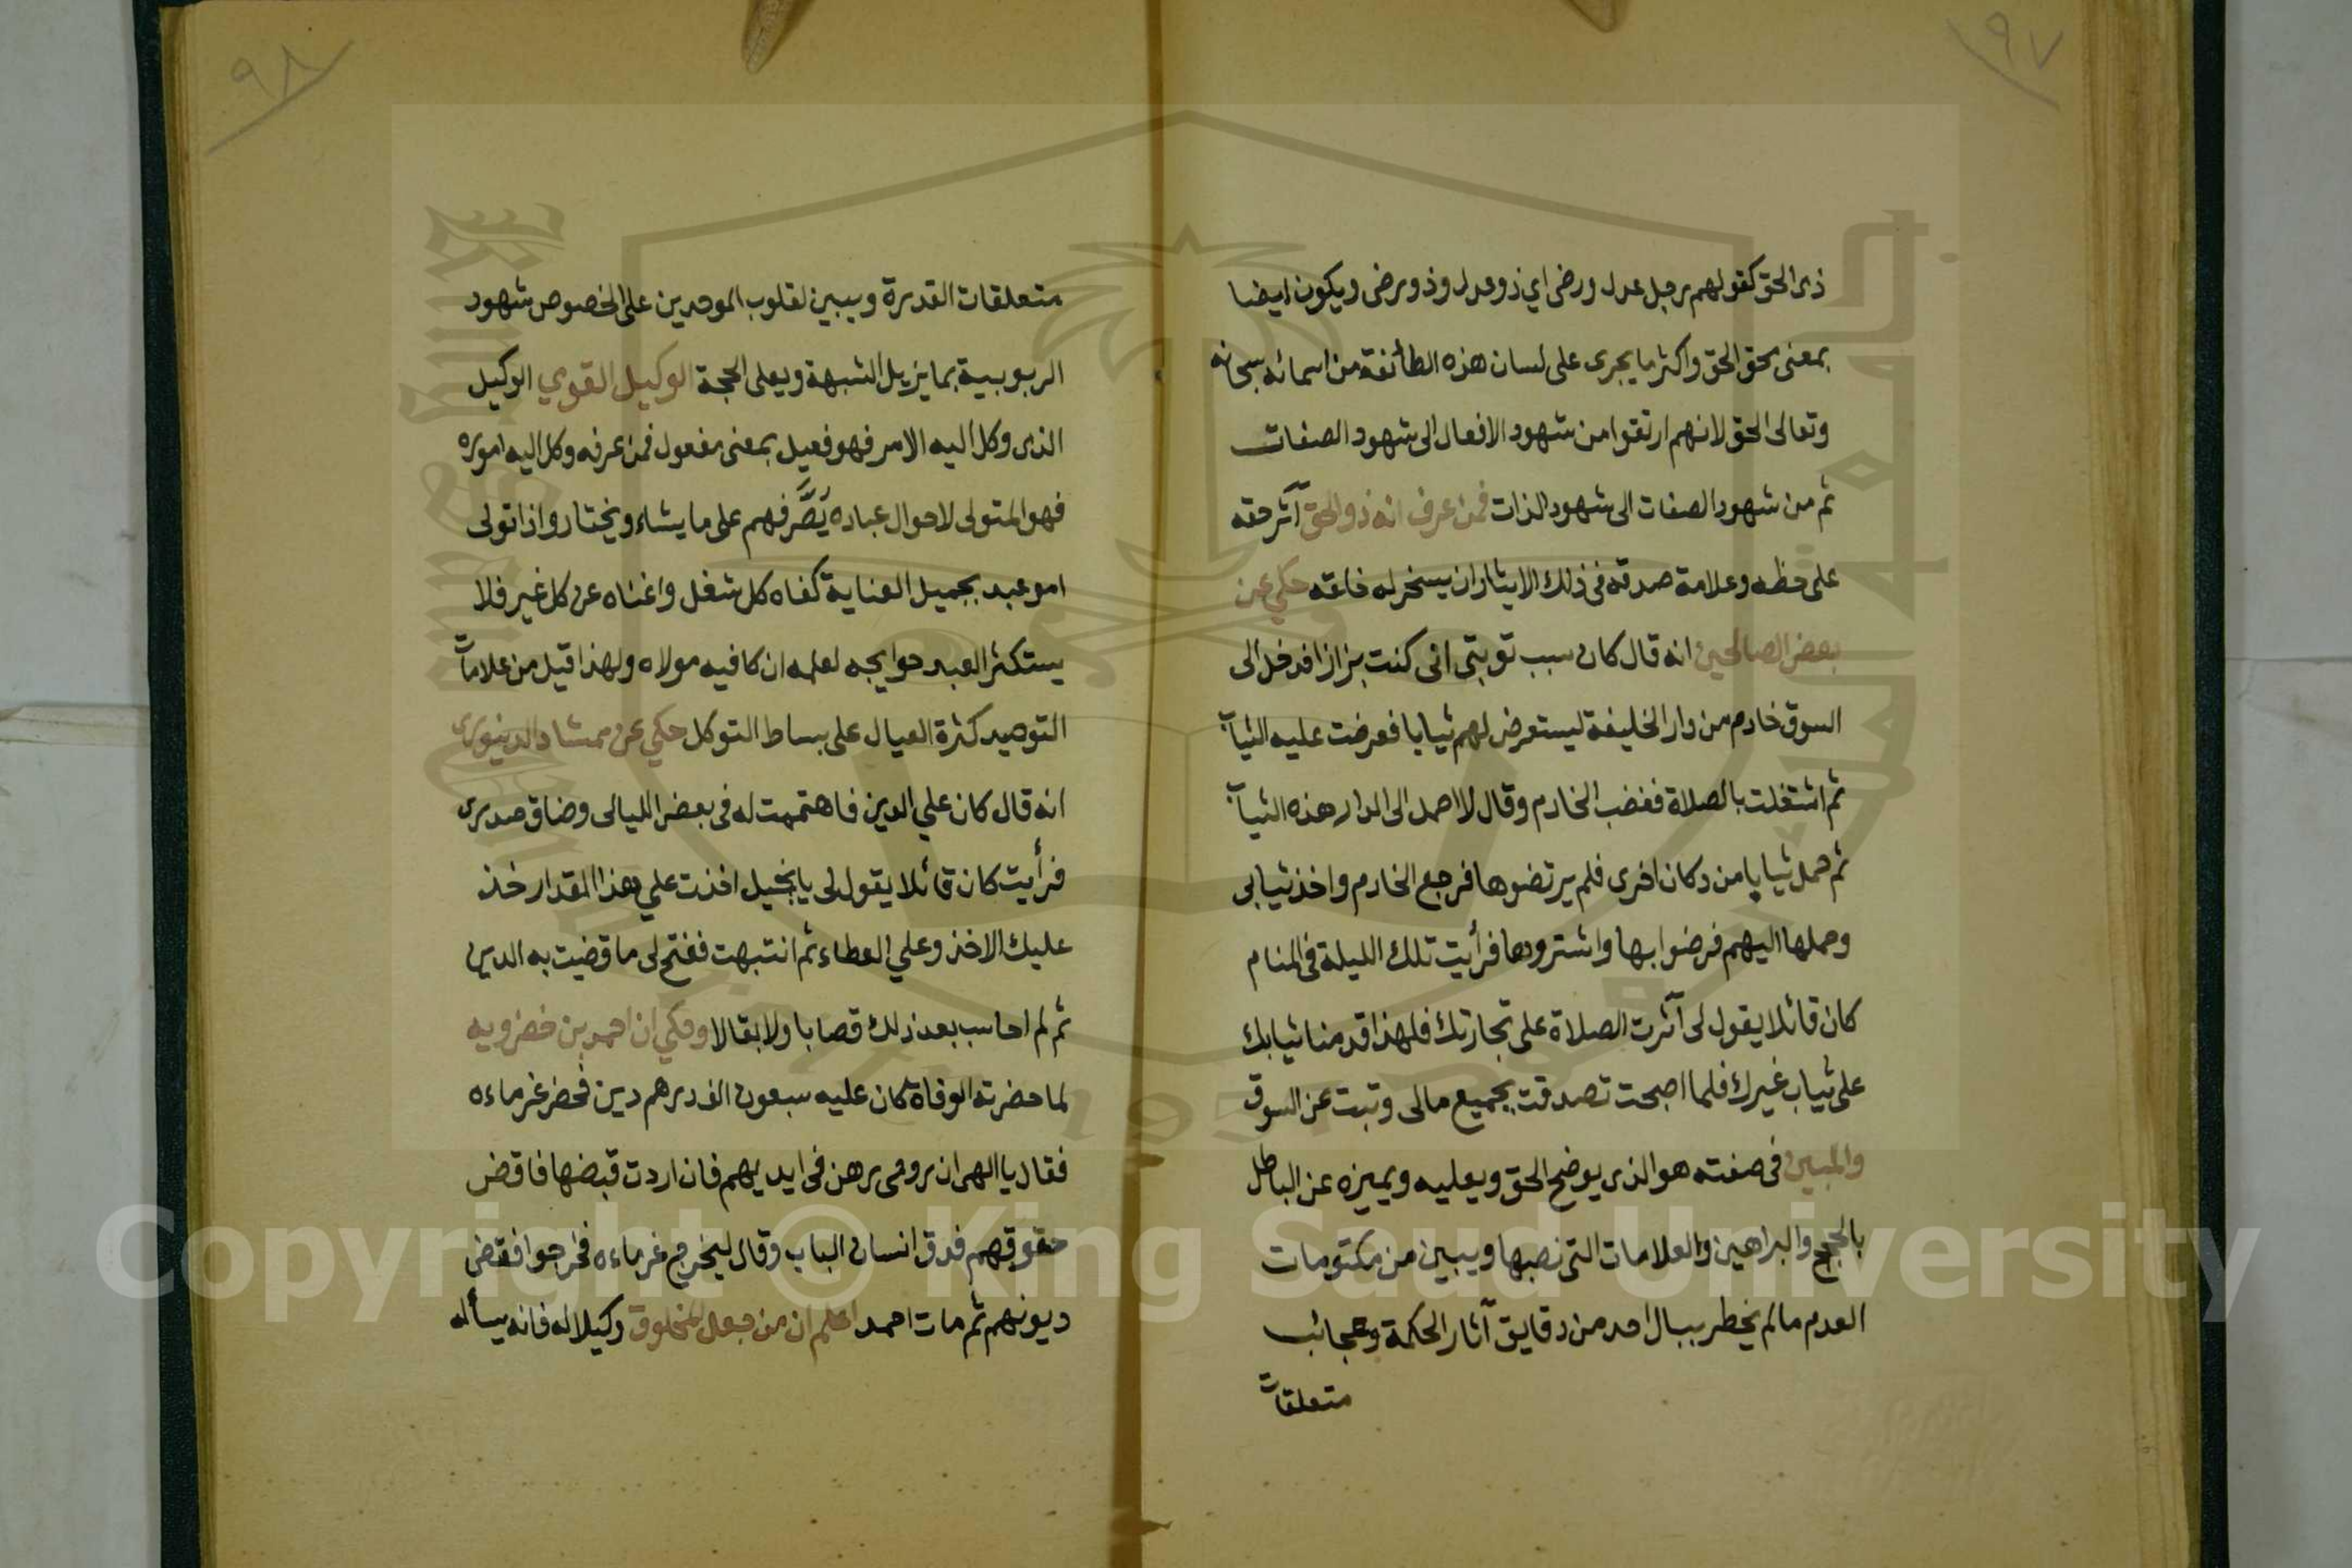 ٩٧
ذى الحق كقولهم رجل عدل ورضى اي ذو عدل وذو رضى ويكون ايضا
بمعنى محق الحق واكثر ما يجرى على لسان هذه الطائفة من اسمائه سبحانه
وتعالى الحق لانهم ارتقوا من شهود الافعال الى شهود الصفات
ثم من شهود الصفات الى شهود الذات فمن عرف انه ذو الحق آثر حقه
على حظه وعلامة صدقه فى ذلك الايثار ان يسخر له خلقه حكي عن
بعض الصالحين انه قال كان سبب توبتى انى كنت بزازا فدخل الى
السوق خادم من دار الخليفة ليستعرض لهم ثيابا فعرضت عليه الثياب
ثم اشتغلت بالصلاة فغضب الخادم وقال لا احمل الى الدار هذه الثياب
ثم حمل ثيابا من دكان اخرى فلم يرتضوها فرجع الخادم واخذ ثيابى
وحملها اليهم فرضوا بها واشتروها فرأيت تلك الليلة فى المنام
كان قائلا يقول لى آثرت الصلاة على تجارتك فلهذا قدمنا ثيابك
على ثياب غيرك فلما اصبحت تصدقت بجميع مالى وتبت عن السوق
والمبين فى صفته هو الذى يوضح الحق ويعليه ويميزه عن الباطل
بالحجج والبراهين والعلامات التى نصبها ويبين من مكتومات
العدم مالم يخطر ببال احد من دقايق آثار الحكمة وعجائب
متعلقات
٩٨
متعلقات القدرة ويبين لقلوب الموحدين على الخصوص شهود
الربوبية بما يزيل الشبهة ويعلى الحجة الوكيل القوي الوكيل
الذى وكل اليه الامر فهو فعيل بمعنى مفعول فمن عرفه وكل اليه اموره
فهو المتولى لاحوال عباده يَصَّرفهم على ما يشاء ويختار واذا تولى
امو عبد بجميل العناية كفاه كل شغل واغناه عن كل غير فلا
يستكثر العبد حوايجه لعلمه ان كافيه مولاه ولهذا قيل من علامات
التوحيد كثرة العيال على بساط التوكل حكي عن ممشاد الدينورى
انه قال كان علي الدين فاهتممت له فى بعض الليالى وضاق صدرى
فرأيت كان قائلا يقول لى يا بخيل اخذت علي هذا المقدار خذ
عليك الاخذ وعلي العطاء ثم انتبهت ففتح لى ما قضيت به الدين
ثم لم احاسب بعد ذلك قصابا ولا بقالا وحكي ان احمد بن خضرويه
لما حضرته الوفاة كان عليه سبعون الف درهم دين فحضر غرماءه
فقال يا الهى ان روحى رهن فى ايديهم فان اردت قبضها فاقض
حقوقهم فدق انسان الباب وقال ليخرج غرماءه فخرجوا فقضى
ديونهم ثم مات احمد اعلم ان من جعل المخلوق وكيلا له فانه يسأله
Copyright © King Saud University